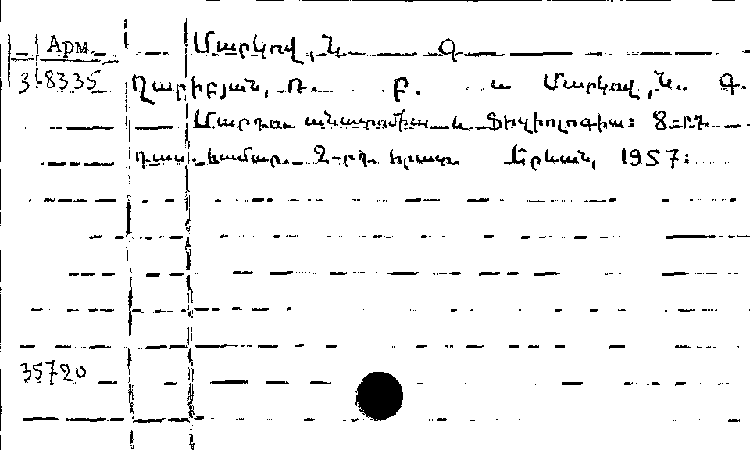 Арм. Մարկով, Ն. Գ.
3-8335 Ղարիբյան, Ռ. Բ. և Մարկով, Ն. Գ.
Մարդու անատոմիա և Ֆիզիոլոգիա: 8-րդ
դաս. համար. 2-րդ հրատ. Երևան, 1957:
35720